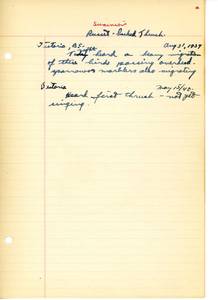 Swainson's
Russet-backed Thrush.
Victoria, B.C. Aug 31, 1939
heard a heavy migration
of these birds passing overhead.
sparrows & warblers also migrating
Victoria May 15/40.
Heard first thrush - not yet
singing.